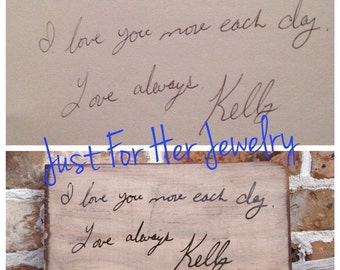 I love you more each day.
Love always
Kelly
Just For Her Jewelry
I love you more each day.
Love always
Kelly